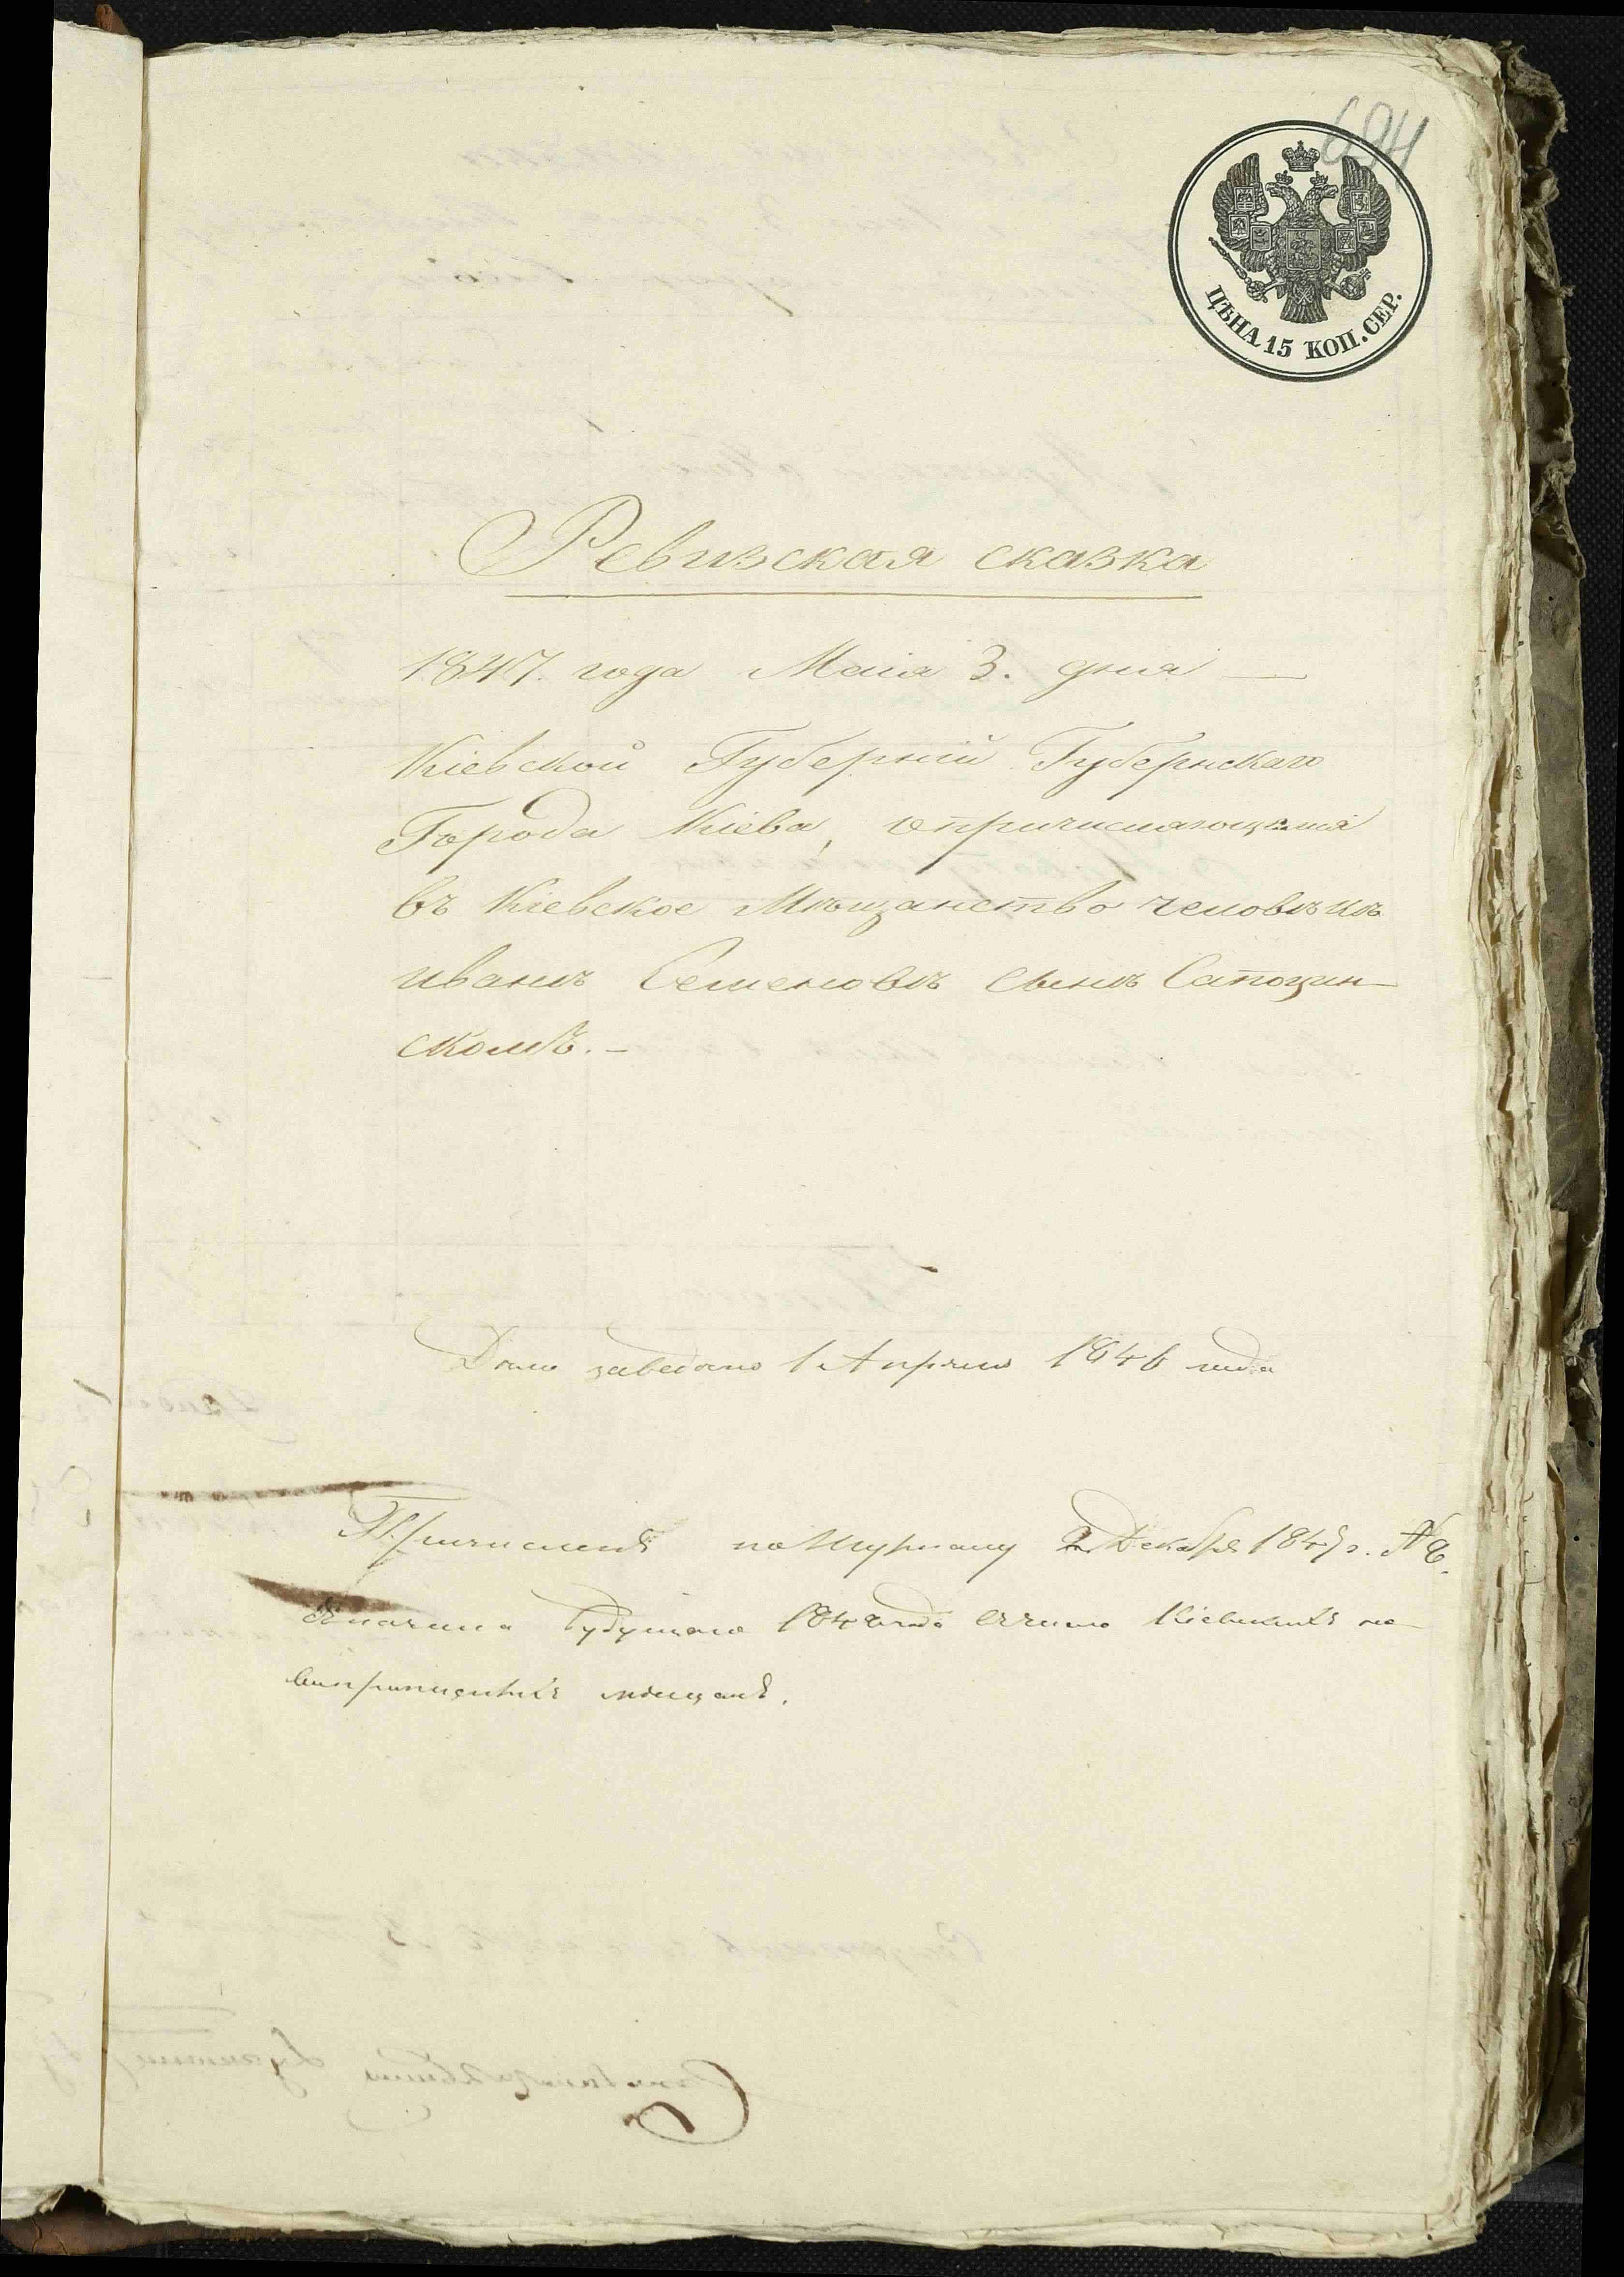 694
ЦѢНА 15 КОП. СЕР.
Ревизская сказка
1847. года Маія 3. дня
Кіевской Губерніи Губернскаго
Города Кіева, опричисляющемся
въ Кіевское Мѣщанство человѣкѣ
Иванѣ Семеновѣ сынѣ Сапоцин-
скомъ. –
Дѣло заведено 1 Апрѣля 1846 года
Причисленъ по Журналу 2 Декабря 1847 г.
съ начала будущаго 1848 года въ число Кіевскихъ
мѣщанъ.